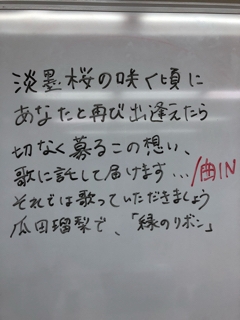 淡墨桜の咲く頃に
あなたと再び出逢えたら
切なく募るこの想い、
歌に託して届けます…/曲IN
それでは歌っていただきましょう
瓜田瑠梨で、「緑のリボン」